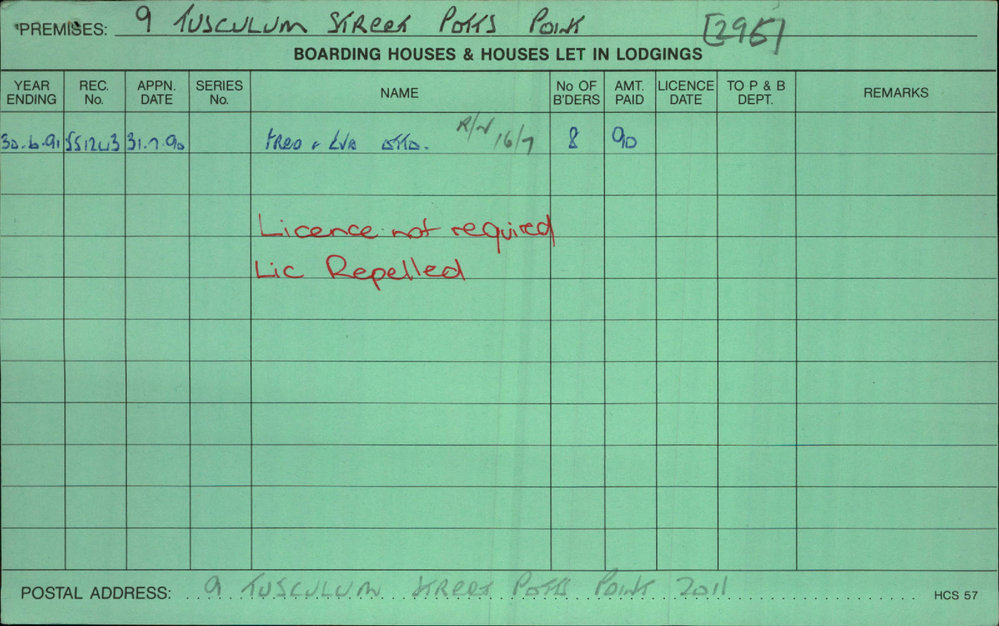 PREMISES: 9 TUSCULUM STREET POTTS POINT [295]
BOARDING HOUSES & HOUSES LET IN LODGINGS
YEAR ENDING REC. No. APPN. DATE SERIES No. NAME No OF B'DERS AMT. PAID LICENCE DATE TO P & B DEPT. REMARKS
30.6.91 31.7.90 FRED & EVA R/N 16/7 8 90
Licence not required
Lic Repelled
POSTAL ADDRESS: 9 TUSCULUM STREET POTTS POINT 2011 HCS 57